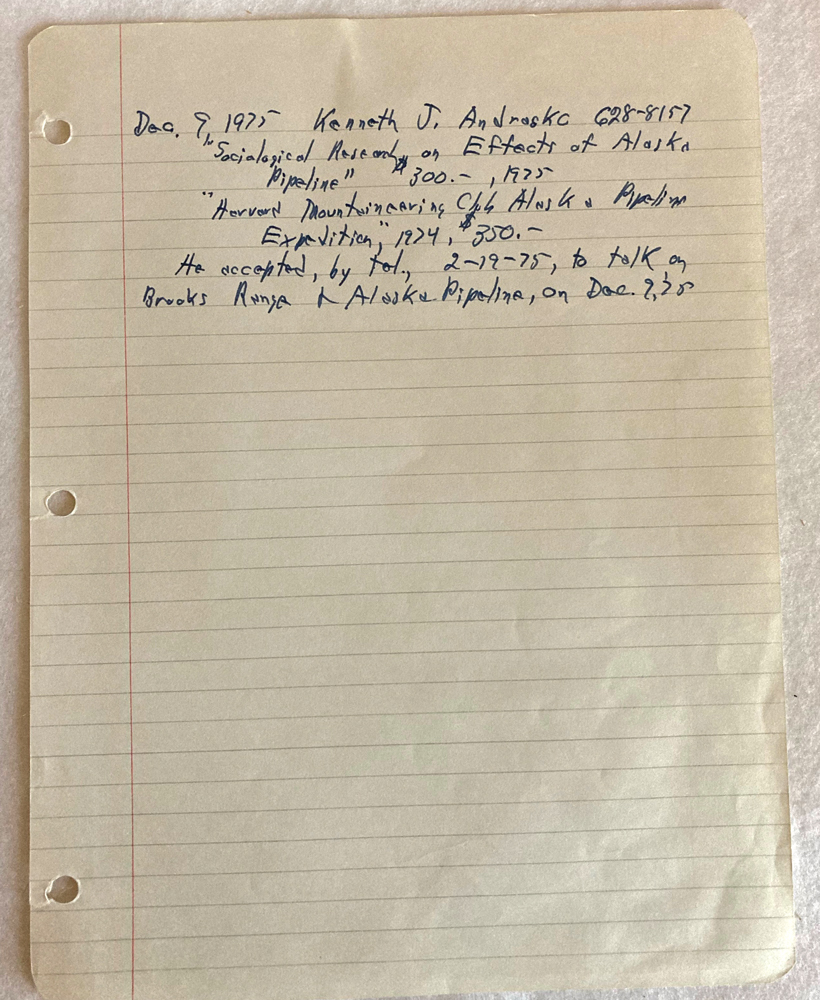 Dec. 9, 1975 Kenneth J. Andrasko 628-8157
"Sociological Research on Effects of Alaska
Pipeline" $300.- , 1975
"Harvard Mountaineering Club Alaska Pipeline
Expedition," 1974, $350.-
He accepted, by tel., 2-19-75, to talk on
Brooks Range & Alaska Pipeline, on Dec. 9, 75